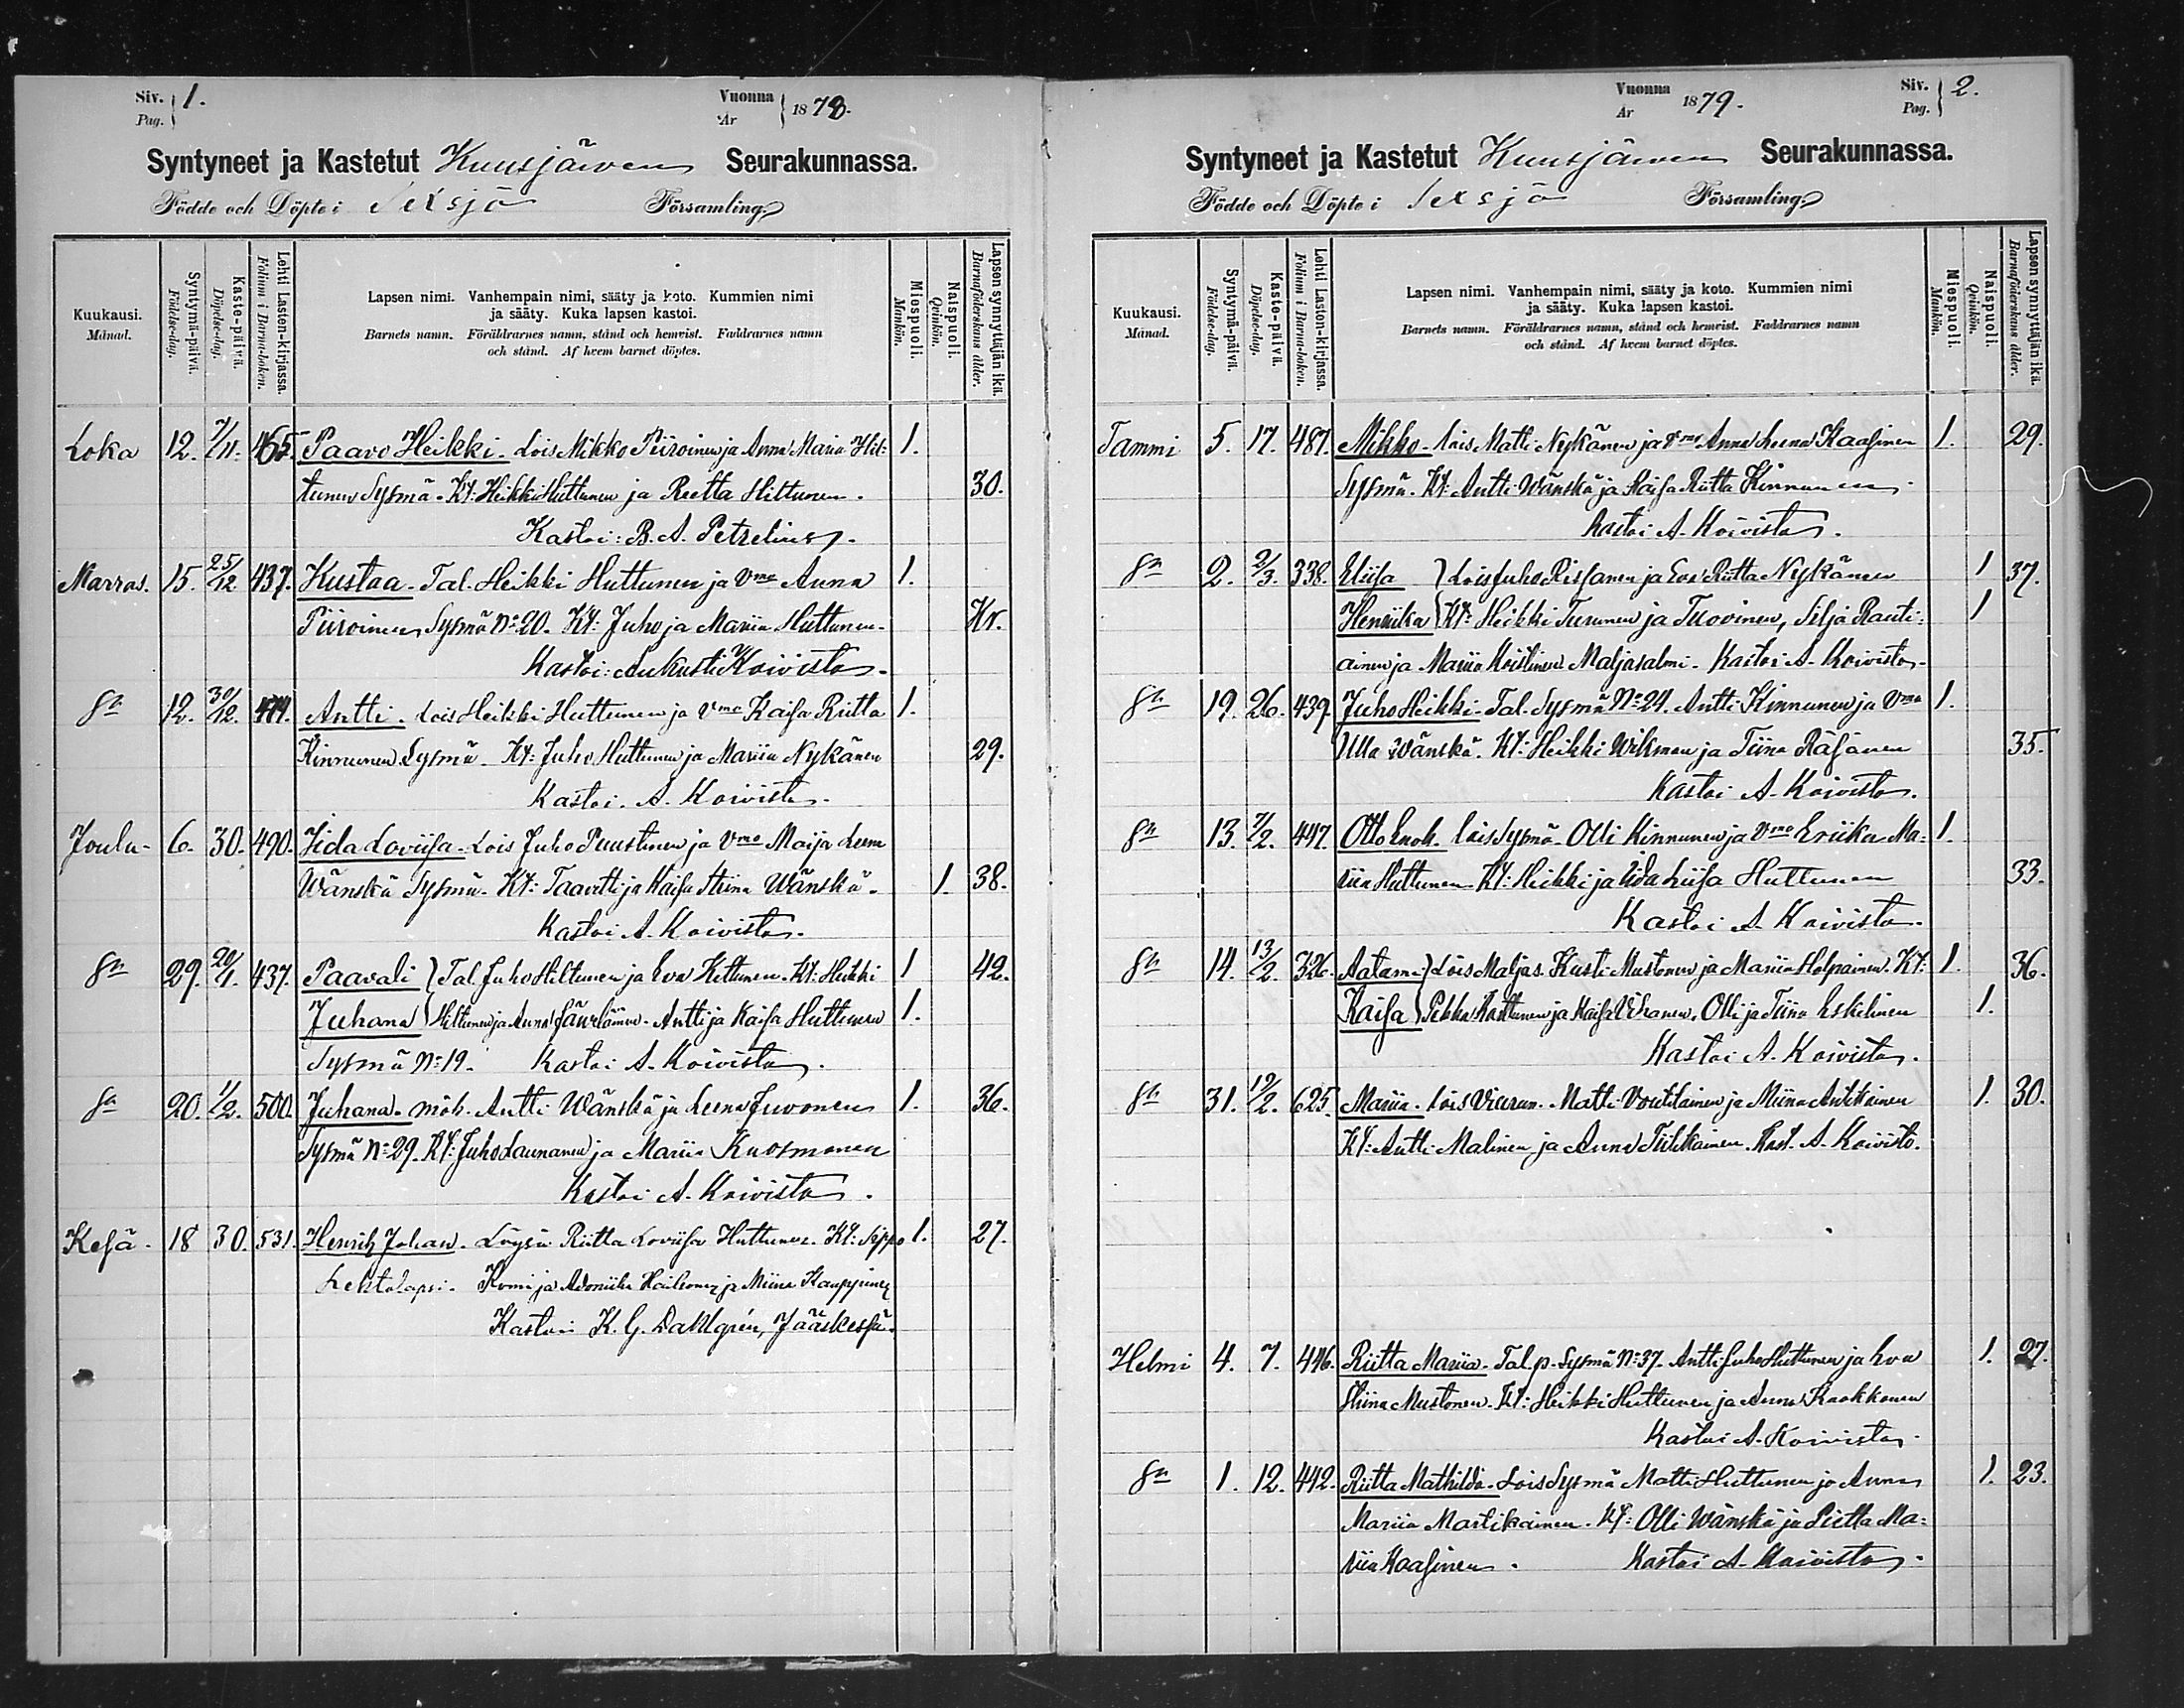 Siv. Pag. 1.
Vuonna År 1878.
Syntyneet ja Kastetut Kuusjärven Seurakunnassa.
Födde och Döpte i Församling.
Kuukausi. Månad.
Syntymä-päivä. Födelse-dag.
Kaste-päivä. Döpelse-dag.
Lehti Lasten-kirjassa. Folium i Barna-boken.
Lapsen nimi. Vanhempain nimi, sääty ja koto. Kummien nimi
ja sääty. Kuka lapsen kastoi.
Barnets namn. Föräldrarnes namn, stånd och hemvist. Faddrarnes namn
och stånd. Af hvem barnet döptes.
Miespuoli. Mankön.
Naispuoli. Qvinkön.
Lapsen synnyttäjän ikä. Barnaföderskans ålder.
Loka 12. 7/11. 465. Paavo Heikki. Lois Mikko Piiroinen ja Anna Maria Hil: 1.
tunen Sysmä. Kt: Heikki Huttunen ja Reetta Hiltunen. 30.
Kastoi: B. A. Petrelius.
Marras. 15. 25/12 437. Kustaa. Tal. Heikki Huttunen ja Vmo Anna 1.
Piiroinen Sysmä No 20. Kt: Juho ja Mariia Huttunen.
Kastoi: Aukusti Koivisto.
12. 30/12. 474. Antti. Lois Heikki Huttunen ja Vmo Kaisa Riitta 1.
Kinnunen Sysmä. Kt: Juho Huttunen ja Mariia Nykänen 29.
Kastoi. A. Koivisto.
Joulu- 6. 30. 490. Iida Loviisa. Lois Juho Puustinen ja Vmo Maija Leena
Wänskä Sysmä. Kt: Taavetti ja Kaisa Stiina Wänskä. 1. 38.
Kastoi A. Koivisto.
29. 20/1. 437. Paavali } Tal. Juho Hiltunen ja Eva Kettunen. Kt: Heikki 1 42.
Juhana } Hiltunen ja Anna . Antti ja Kaisa Huttunen 1.
Sysmä No 19. Kastoi A. Koivisto.
20. 1/2. 500. Juhana. mök. Antti Wänskä ja Leena Juvonen 1. 36.
Sysmä No 29. Kt: Juho Launanen ja Mariia Kuosmanen
Kastoi A. Koivisto.
Kesä. 18 30. 531. Henrik Johan. Löysä Riitta Loviisa Huttunen. Kt: Seppo 1. 27.
Lehtolapsi. ja Miina Kauppinen
Kastoi K. G. Dahlgrén, Jääskessä.
Vuonna År 1879.
Siv. Pag. 2.
Syntyneet ja Kastetut Kuusjärven Seurakunnassa.
Födde och Döpte i Församling.
Kuukausi. Månad.
Syntymä-päivä. Födelse-dag.
Kaste-päivä. Döpelse-dag.
Lehti Lasten-kirjassa. Folium i Barna-boken.
Lapsen nimi. Vanhempain nimi, sääty ja koto. Kummien nimi
ja sääty. Kuka lapsen kastoi.
Barnets namn. Föräldrarnes namn, stånd och hemvist. Faddrarnes namn
och stånd. Af hvem barnet döptes.
Miespuoli. Mankön.
Naispuoli. Qvinkön.
Lapsen synnyttäjän ikä. Barnaföderskans ålder.
Tammi 5. 17. 487. Mikko. Lois. Matti Nykänen ja Vmo Anna Leena Kaasinen 1. 29.
Sysmä. Kt: Antti Wänskä ja Kaisa Riitta Kinnunen.
Kastoi A. Koivisto.
2. 2/3. 338. Eliisa } Lois Juho Rissanen ja Eva Riitta Nykänen 1 37.
Henriika } Kt: Heikki Turunen ja Tuovinen, Silja Rauti: 1
ainen ja Mariia Koistinen Maljasalmi. Kastoi A. Koivisto.
19. 26. 439. Juho Heikki. Tal. Sysmä No 24. Antti Kinnunen ja Vmo 1.
Ulla Wänskä. Kt: Heikki Wikman ja Tiina Räsänen 35.
Kastoi A. Koivisto.
13. 7/2. 447. Otto Enok. Lois Sysmä. Olli Kinnunen ja Vmo Eriika Ma: 1.
riia Huttunen Kt: Heikki ja Iida Liisa Huttunen 33.
Kastoi A. Koivisto.
14. 13/2. 326. Aatami } Lois Maljas. Kusti Mustonen ja Mariia Holpainen. Kt: 1. 36.
Kaisa } Pekka Karttunen ja Kaisa Vihanen, Olli ja Tiina Eskelinen 1.
Kastoi A. Koivisto.
31. 19/2. 625. Mariia. Lois Vieruv. Matti Voutilainen ja Miina Antikainen 1. 30.
Kt: Antti Malinen ja Anna Tiilikainen. Kast. A. Koivisto.
Helmi 4. 7. 446. Riitta Mariia. Tal. p. Sysmä No 37. Antti Juho Huttunen ja Eva 1. 27.
Stiina Mustonen. Kt: Heikki Huttunen ja Anna Kaakkonen
Kastoi A. Koivisto.
1. 12. 442. Riitta Mathilda. Lois Sysmä Matti Huttunen ja Anna 1. 23.
Mariia Martikainen. Kt: Olli Wänskä ja Ma:
riia Kaasinen. Kastoi A. Koivisto.